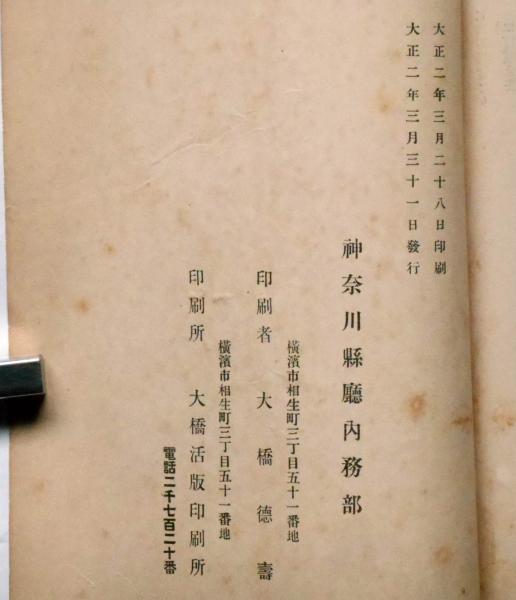 大正二年三月二十八日印刷
大正二年三月三十一日發行
神奈川縣廳內務部
橫濱市相生町三丁目五十一番地
印刷者 大橋德壽
橫濱市相生町三丁目五十一番地
印刷所 大橋活版印刷所
電話二千七百二十番